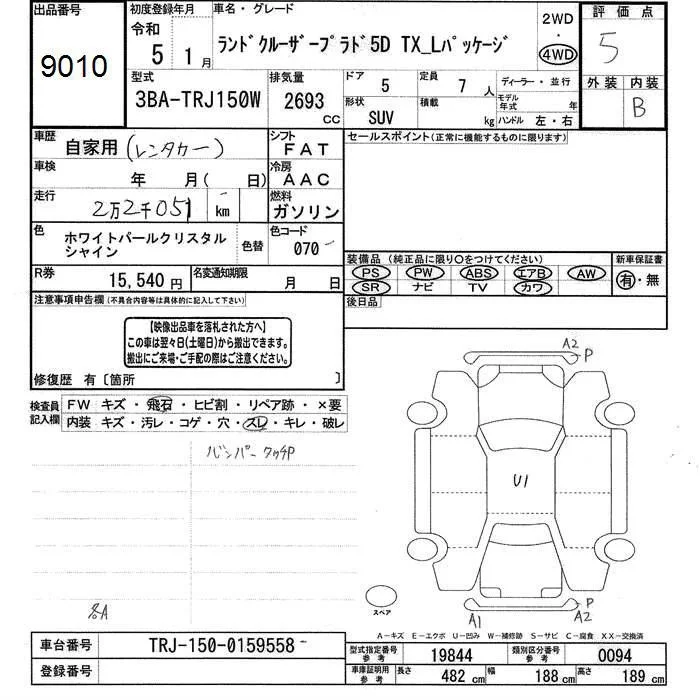 出品番号
9010
初度登録年月
令和
5 1月
車名・グレード
ランドクルーザープラド5D TX_Lパッケージ
2WD
・
4WD
評価点
5
外装 内装
B
型式
3BA-TRJ150W
排気量
2693 cc
ドア 5
定員 7 人
形状 SUV
積載 kg
ディーラー・並行
モデル年式 年
ハンドル 左・右
車歴 自家用 (レンタカー)
シフト FAT
車検 年 月( 日)
冷房 AAC
走行 2万2千051 km
燃料 ガソリン
色 ホワイトパールクリスタルシャイン
色替
色コード 070
R券 15,540 円
名変通知期限 月 日
セールスポイント(正常に機能するものに限ります)
装備品(純正品に限り○をつけてください)
PS PW ABS エアB AW
SR ナビ TV カワ
新車保証書
有・無
後日品
注意事項申告欄(不具合内容等は具体的に記入して下さい)
【映像出品車を落札された方へ】
この車は翌々日(土曜日)から搬出できます。
搬出にご来場・ご手配の際はご注意ください。
修復歴 有〔箇所 〕
検査員記入欄
FW キズ・飛石・ヒビ割・リペア跡・×要
内装 キズ・汚レ・コゲ・穴・スレ・キレ・破レ
バンパータッチP
A2
P
U1
スペア
A1
A2
P
A-キズ E-エクボ U-凹み W-補修跡 S-サビ C-腐食 XX-交換済
車台番号 TRJ-150-0159558
登録番号
型式指定番号 参考 19844
類別区分番号 参考 0094
車庫証明用 参考 長さ 482 cm 幅 188 cm 高さ 189 cm